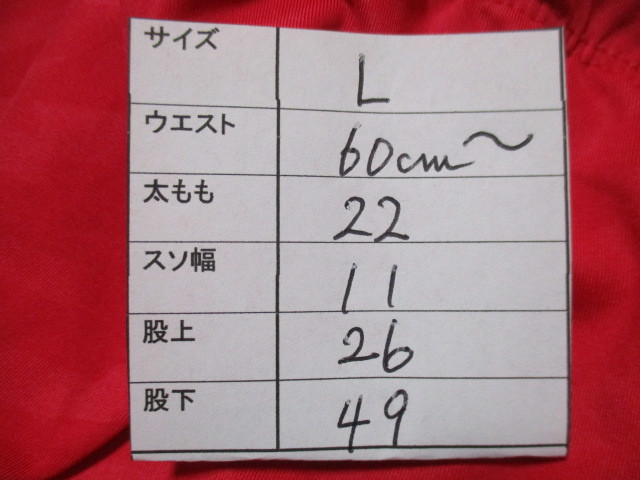 サイズ L
ウエスト 60cm〜
太もも 22
スソ幅 11
股上 26
股下 49